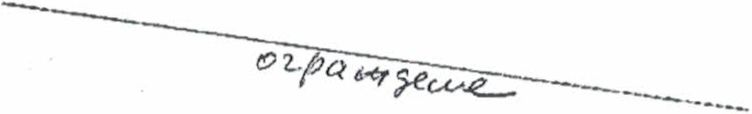 ограждение